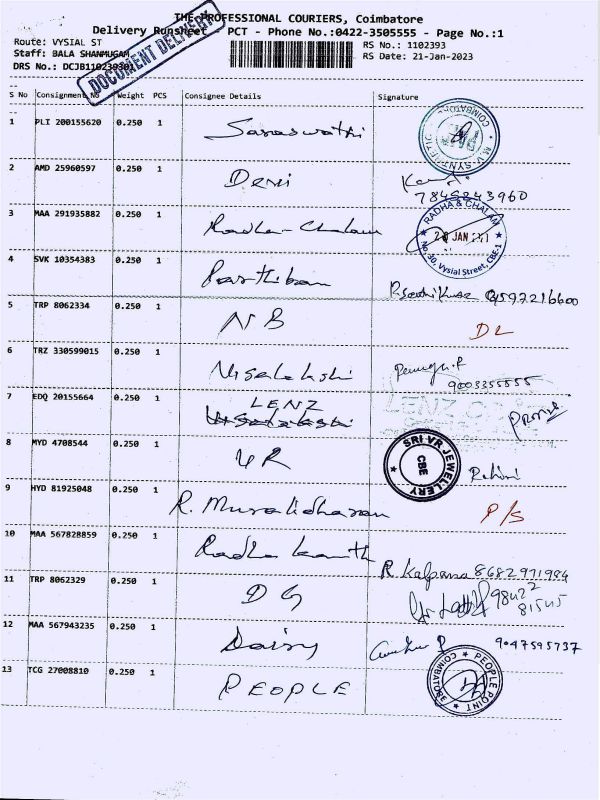 THE PROFESSIONAL COURIERS, Coimbatore
Delivery Runsheet PCT - Phone No.:0422-3505555 - Page No.:1
DOCUMENT DELIVERY
Route: VYSIAL ST RS No.: 1102393
Staff: BALA SHANMUGAM RS Date: 21-Jan-2023
DRS No.: DCJB110239301
S No Consignment No Weight PCS Consignee Details Signature
1 PLI 200155620 0.250 1 Saraswathi
2 AMD 25960597 0.250 1 Devi
3 MAA 291935882 0.250 1 Radha-Chalam
RADHA & CHALAM
No.30, Vysial Street, CBE-1
4 SVK 10354383 0.250 1 Parthiban
5 TRP 8062334 0.250 1 NB DL
6 TRZ 330599015 0.250 1 Visalakshi 9003355555
7 EDQ 20155664 0.250 1 LENZ
8 MYD 4708544 0.250 1 VR
SRI VR JEWELLERY
CBE
9 HYD 81925048 0.250 1 R. Muralidharan P/S
10 MAA 567828859 0.250 1 Radha kanth R. Kalpana 8682971984
11 TRP 8062329 0.250 1 DG 98422
81545
12 MAA 567943235 0.250 1 Daisy 9047595737
13 TCG 27008810 0.250 1 PEOPLE
PEOPLE POINT
COIMBATORE